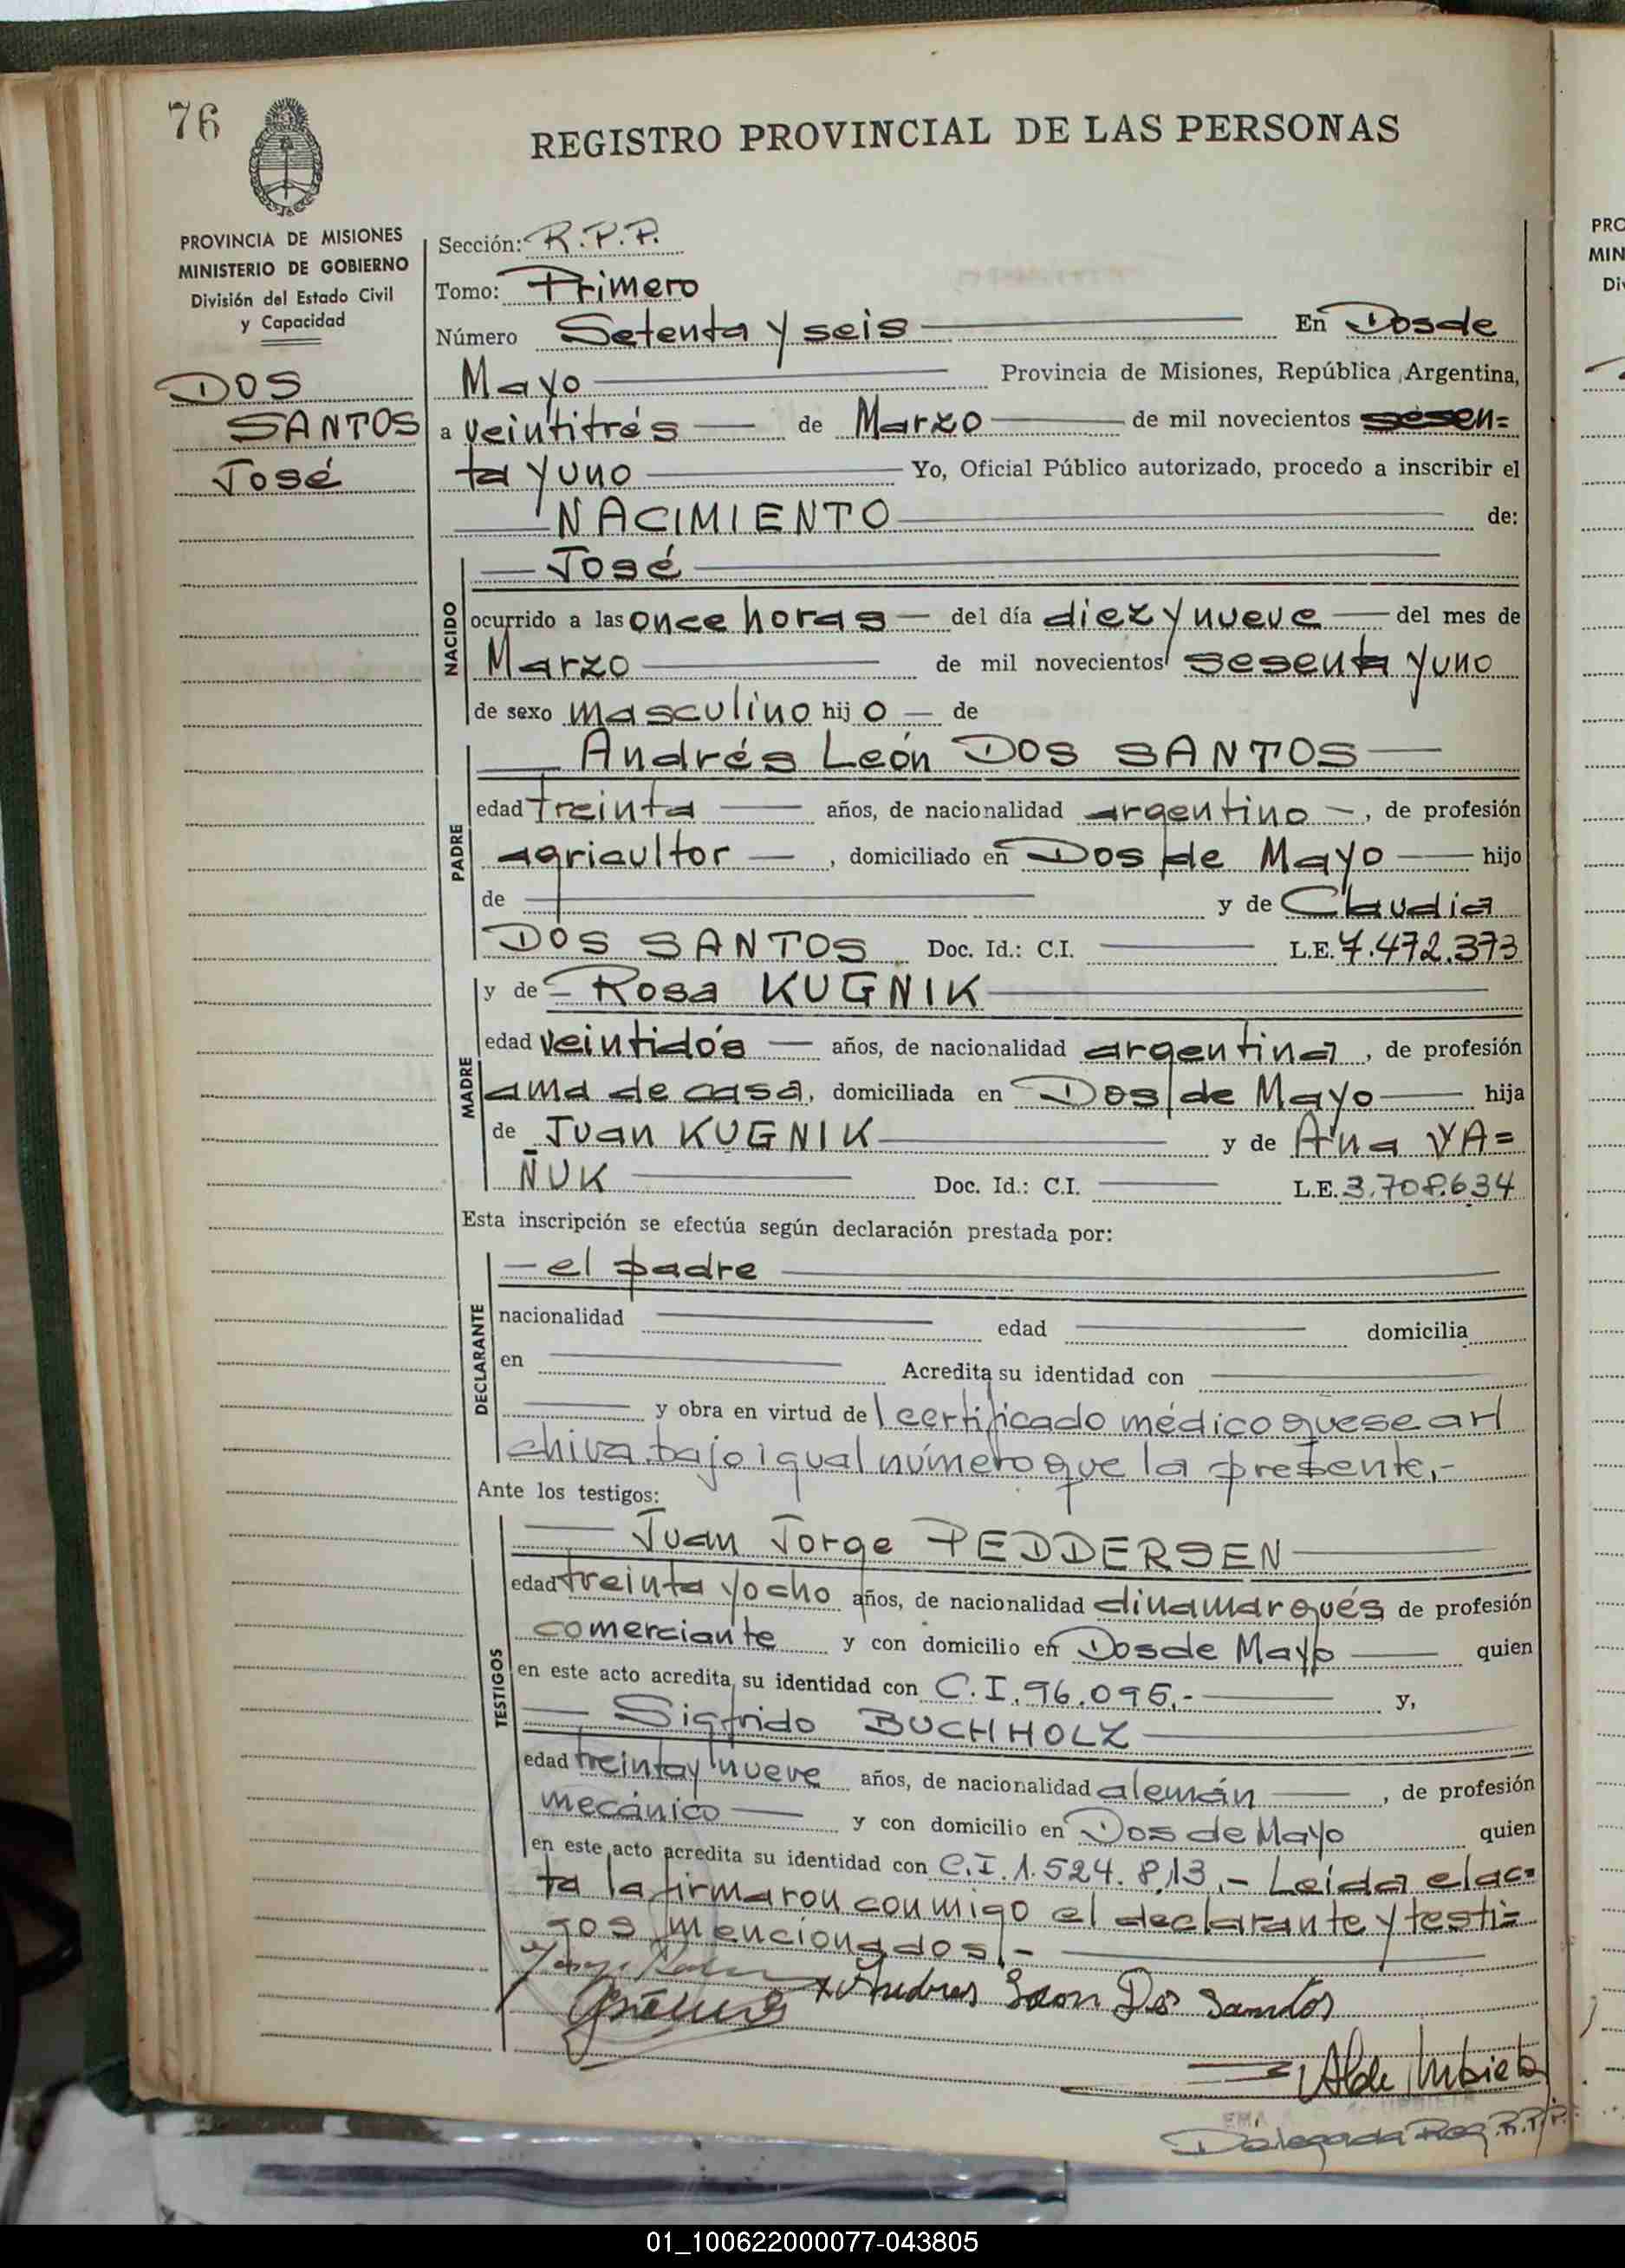 76
REGISTRO PROVINCIAL DE LAS PERSONAS
PROVINCIA DE MISIONES
MINISTERIO DE GOBIERNO
División del Estado Civil
y Capacidad
DOS
SANTOS
José
Sección: R.P.P.
Tomo: Primero
Número Setenta y seis En Dos de
Mayo Provincia de Misiones, República Argentina,
a veintitrés de Marzo de mil novecientos sesen=
ta y uno Yo, Oficial Público autorizado, procedo a inscribir el
NACIMIENTO de:
José
NACIDO
ocurrido a las once horas del día diez y nueve del mes de
Marzo de mil novecientos sesenta y uno
de sexo masculino hijo de
Andrés León DOS SANTOS
PADRE
edad treinta años, de nacionalidad argentino, de profesión
agricultor, domiciliado en Dos de Mayo hijo
de y de Claudia
DOS SANTOS Doc. Id.: C.I. L.E. 7.472.373
y de Rosa KUGNIK
MADRE
edad veintidós años, de nacionalidad argentina, de profesión
ama de casa, domiciliada en Dos de Mayo hija
de Juan KUGNIK y de Ana YA=
ÑUK Doc. Id.: C.I. L.E. 3.708.634
Esta inscripción se efectúa según declaración prestada por:
DECLARANTE
- el padre
nacionalidad edad domicilia
en Acredita su identidad con
y obra en virtud del certificado médico que se ar
chiva bajo igual número que la presente.-
Ante los testigos:
TESTIGOS
Juan Jorge PEDDERSEN
edad treinta y ocho años, de nacionalidad dinamarqués de profesión
comerciante y con domicilio en Dos de Mayo quien
en este acto acredita su identidad con C.I. 96.095.- y,
Sigfrido BUCHHOLZ
edad treinta y nueve años, de nacionalidad alemán, de profesión
mecánico y con domicilio en Dos de Mayo quien
en este acto acredita su identidad con C.I. 1.524.813.- Leída el ac=
ta la firmaron conmigo el declarante y testi=
gos mencionados.-
x Andres Leon Dos Santos
Delegada Reg. R.P.P.
PRO
MIN
Di
01_100622000077-043805